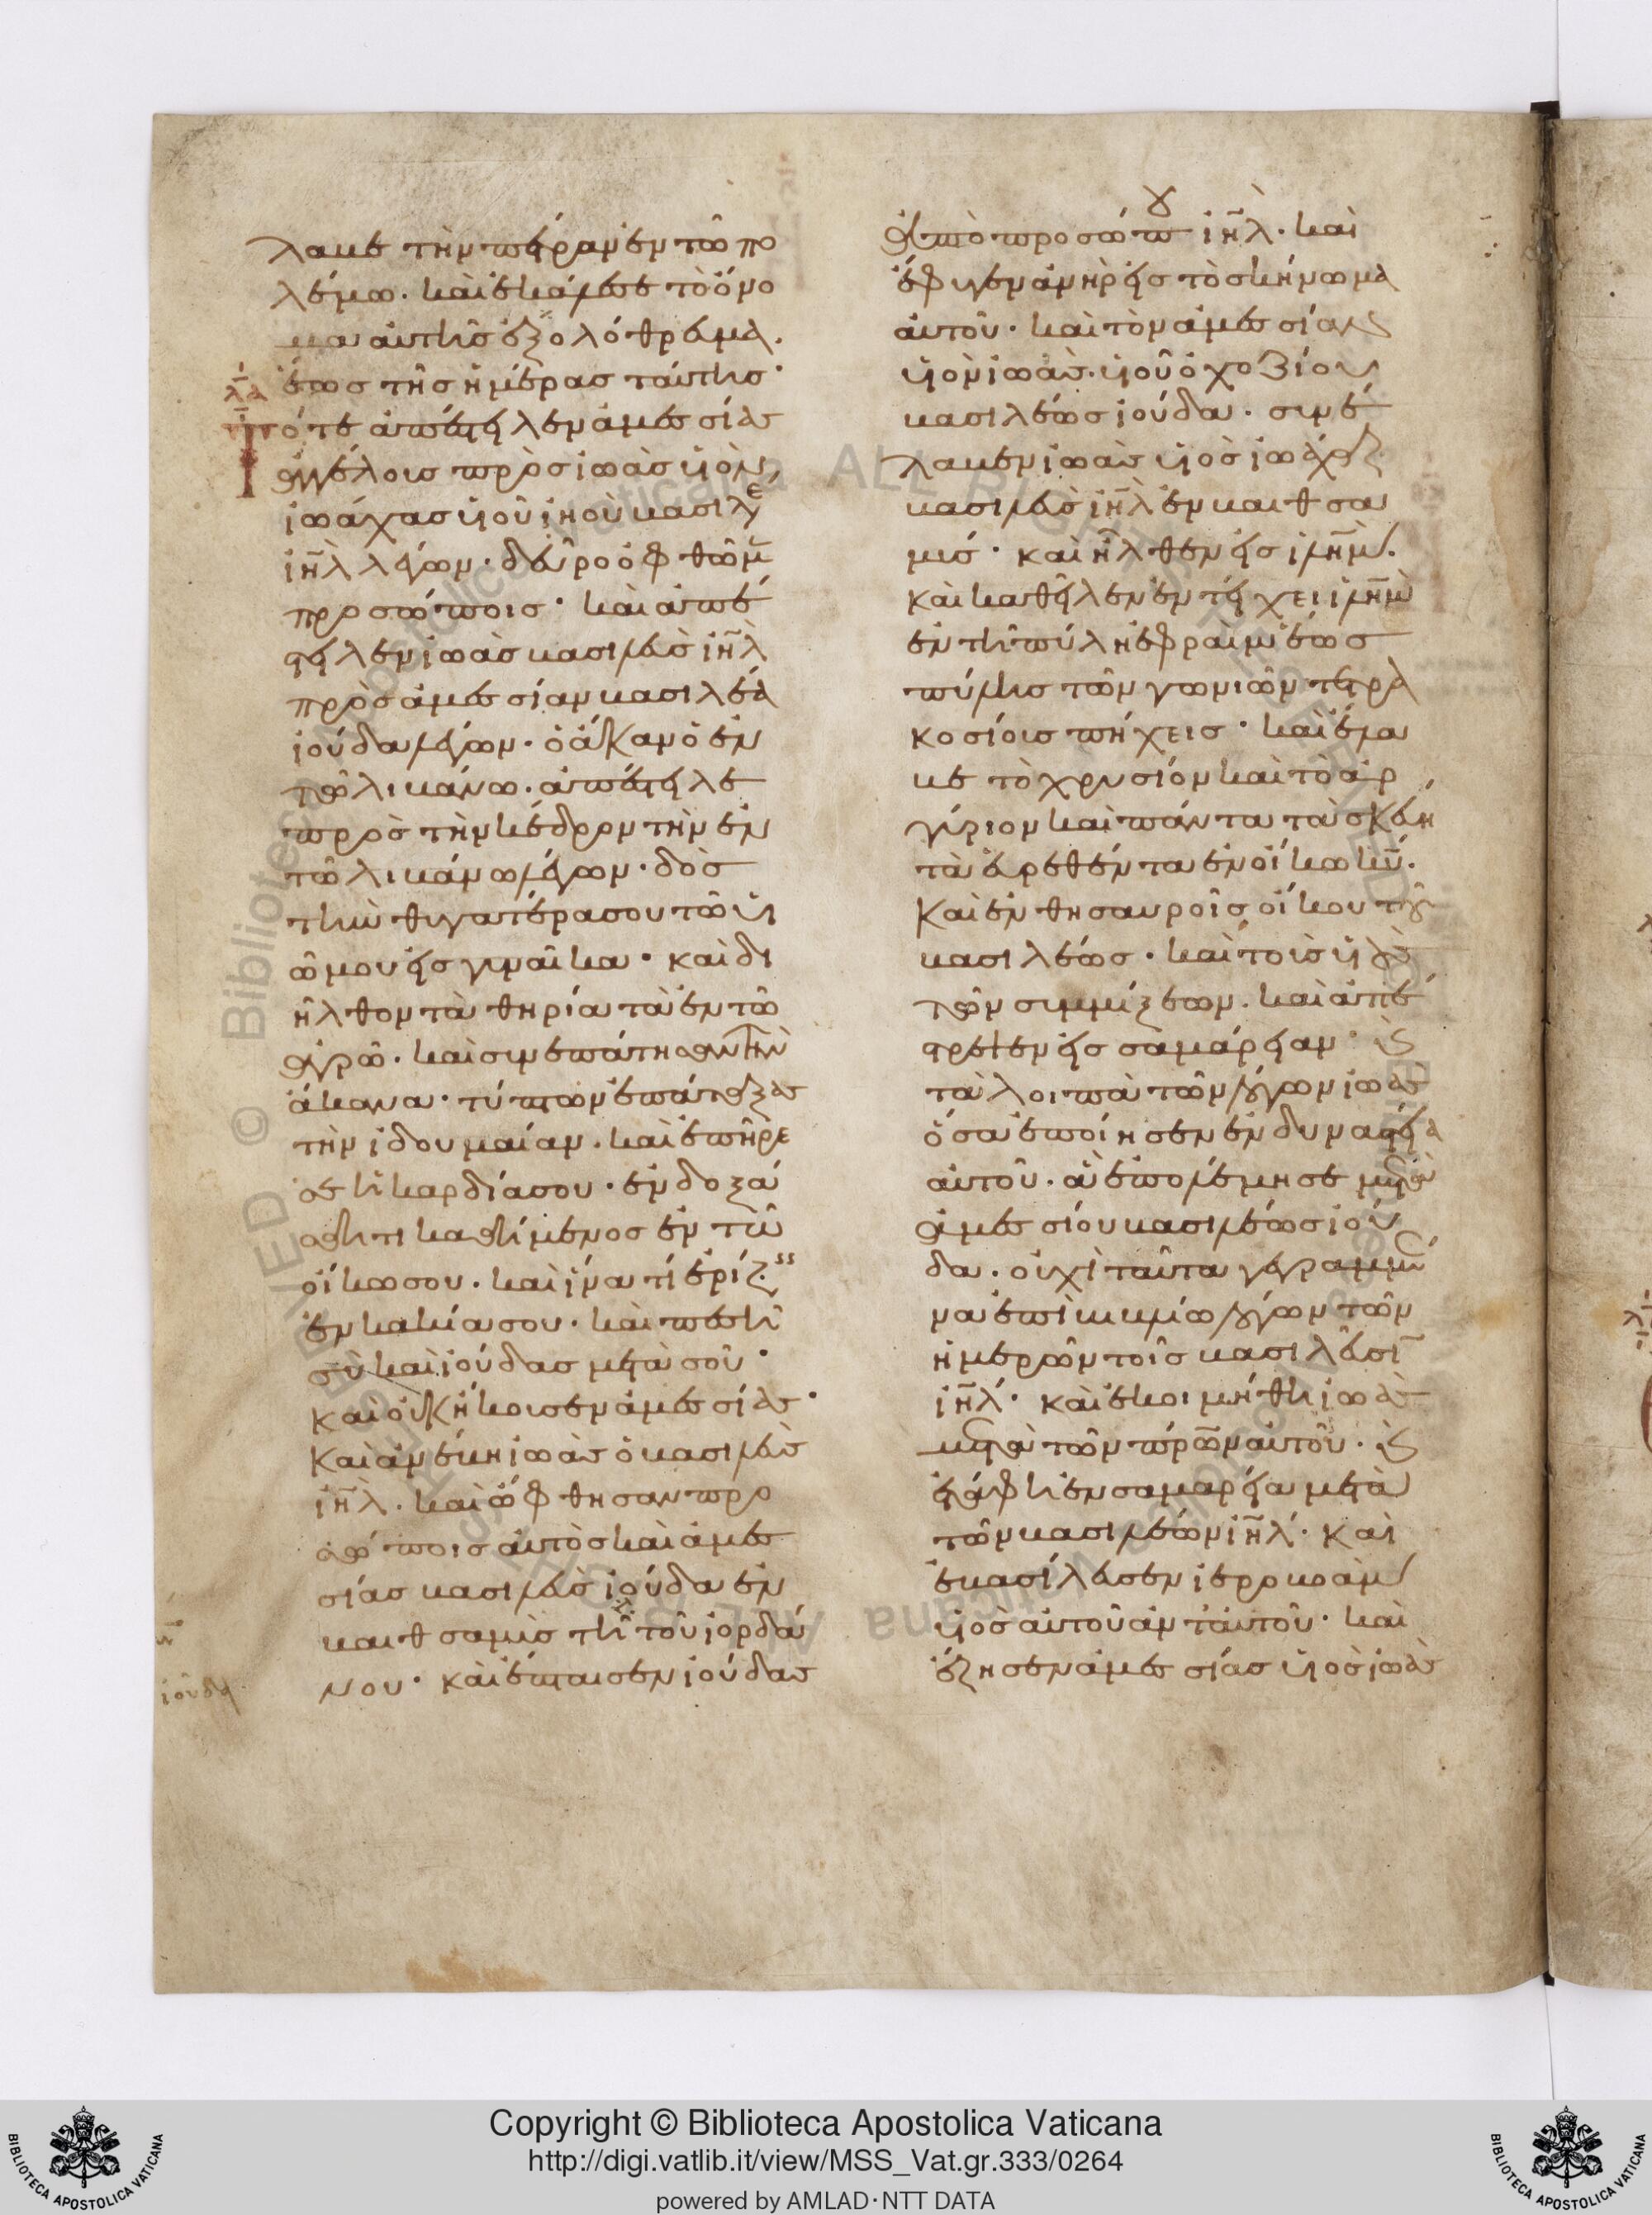 λαβε τὴν πέτραν ἐν τῶ πο
λέμω· καὶ ἐκάλεσε τὸ ὄνο
μα αὐτῆς ἐξολόθρευμα.
ἕως τῆς ἡμέρας ταύτης·
λα
Τότε ἀπέστειλεν ἀμεσσίας
ἀγγέλους πρὸς ἰωὰς υἱὸν
ἰωάχας υἱοῦ ἰηοὺ βασιλε
ιη̅λ λέγων· δεῦρο ὀφθῶμ
προσώποις· καὶ ἀπέ
στειλεν ἰωὰς βασιλεὺς ιη̅λ
πρὸς ἀμεσσίαν βασιλέα
ἰούδα λέγων· ὁ ἄκαν ὁ ἐν
τῶ λιβάνω. ἀπέστειλε
πρὸς τὴν κέδρον τὴν ἐν
τῶ λιβάνω λέγων· δὸς
τὴν θυγατέρα σου τῶ υἱ
ῶ μου εἰς γυναῖκα· καὶ δι
ῆλθον τὰ θηρία τὰ ἐν τῶ
ἀγρῶ. καὶ συνεπάτησαν τὴν
ἄκανα· τύπτων ἐπάταξας
τὴν ἰδουμαίαν. καὶ ἐπῆρε
σε ἡ καρδία σου· ἐνδοξά
σθητι καθήμενος ἐν τῶ
οἴκω σου. καὶ ἵνα τί ἐρίζεις
ἐν κακία σου· καὶ πεσῆ
σὺ καὶ ἰούδας μετὰ σοῦ·
καὶ οὐκ ἤκουσεν ἀμεσσίας·
καὶ ἀνέβη ἰωὰς ὁ βασιλεὺς
ιη̅λ. καὶ ὤφθησαν προ
σώποις αὐτὸς καὶ ἀμεσ
σίας βασιλεὺς ἰούδα ἐν
βαιθσαμὺς τῆ τοῦ ἰορδά
ἰούδα
νου· καὶ ἔπταισεν ἰούδας
ἀπὸ προσώπου ιη̅λ· καὶ
ἔφυγεν ἀνὴρ εἰς τὸ σκήνωμα
αὐτοῦ· καὶ τὸν ἀμεσσίαν
υἱὸν ἰωὰς. υἱοῦ ὀχοζίου
βασιλέως ἰούδα· συνέ
λαβεν ἰωὰς υἱὸς ἰωάχαζ
βασιλεὺς ιη̅λ ἐν βαιθσα
μύς· καὶ ἦλθεν εἰς ιλη̅μ.
καὶ καθεῖλεν ἐν τείχει ιλη̅μ
ἐν τῆ πύλη ἐφραὶμ ἕως
πύλης τῶν γωνιῶν τετρα
κοσίους πήχεις· καὶ ἔλα
βε τὸ χρυσίον καὶ τὸ ἀρ
γύριον καὶ πάντα τὰ σκεύη
τὰ εὑρεθέντα ἐν οἴκω κυ̅.
καὶ ἐν θησαυροῖς οἴκου τοῦ
βασιλέως· καὶ τοὺς υἱοὺς
τῶν συμμίξεων. καὶ ἀπέ
στρεψεν εἰς σαμάρειαν· καὶ
τὰ λοιπὰ τῶν λόγων ἰωὰς
ὅσα ἐποίησεν ἐν δυναστεία
αὐτοῦ. ἃ ἐπολέμησε μετὰ
ἀμεσσίου βασιλέως ἰού
δα. οὐχὶ ταῦτα γεγραμμέ
να ἐπὶ βιβλίω λόγων τῶν
ἡμερῶν τοῖς βασιλεῦσι
ιη̅λ· καὶ ἐκοιμήθη ἰωὰς
μετὰ τῶν πρω̅ν αὐτοῦ. καὶ
ἐτάφη ἐν σαμαρεία μετὰ
τῶν βασιλέων ιη̅λ· καὶ
ἐβασίλευσεν ἱεροβοὰμ
υἱὸς αὐτοῦ ἀντ' αὐτοῦ· καὶ
ἔζησεν ἀμεσσίας υἱὸς ἰωὰς
Copyright © Biblioteca Apostolica Vaticana
http://digi.vatlib.it/view/MSS_Vat.gr.333/0264
powered by AMLAD·NTT DATA
BIBLIOTECA APOSTOLICA VATICANA
BIBLIOTECA APOSTOLICA VATICANA